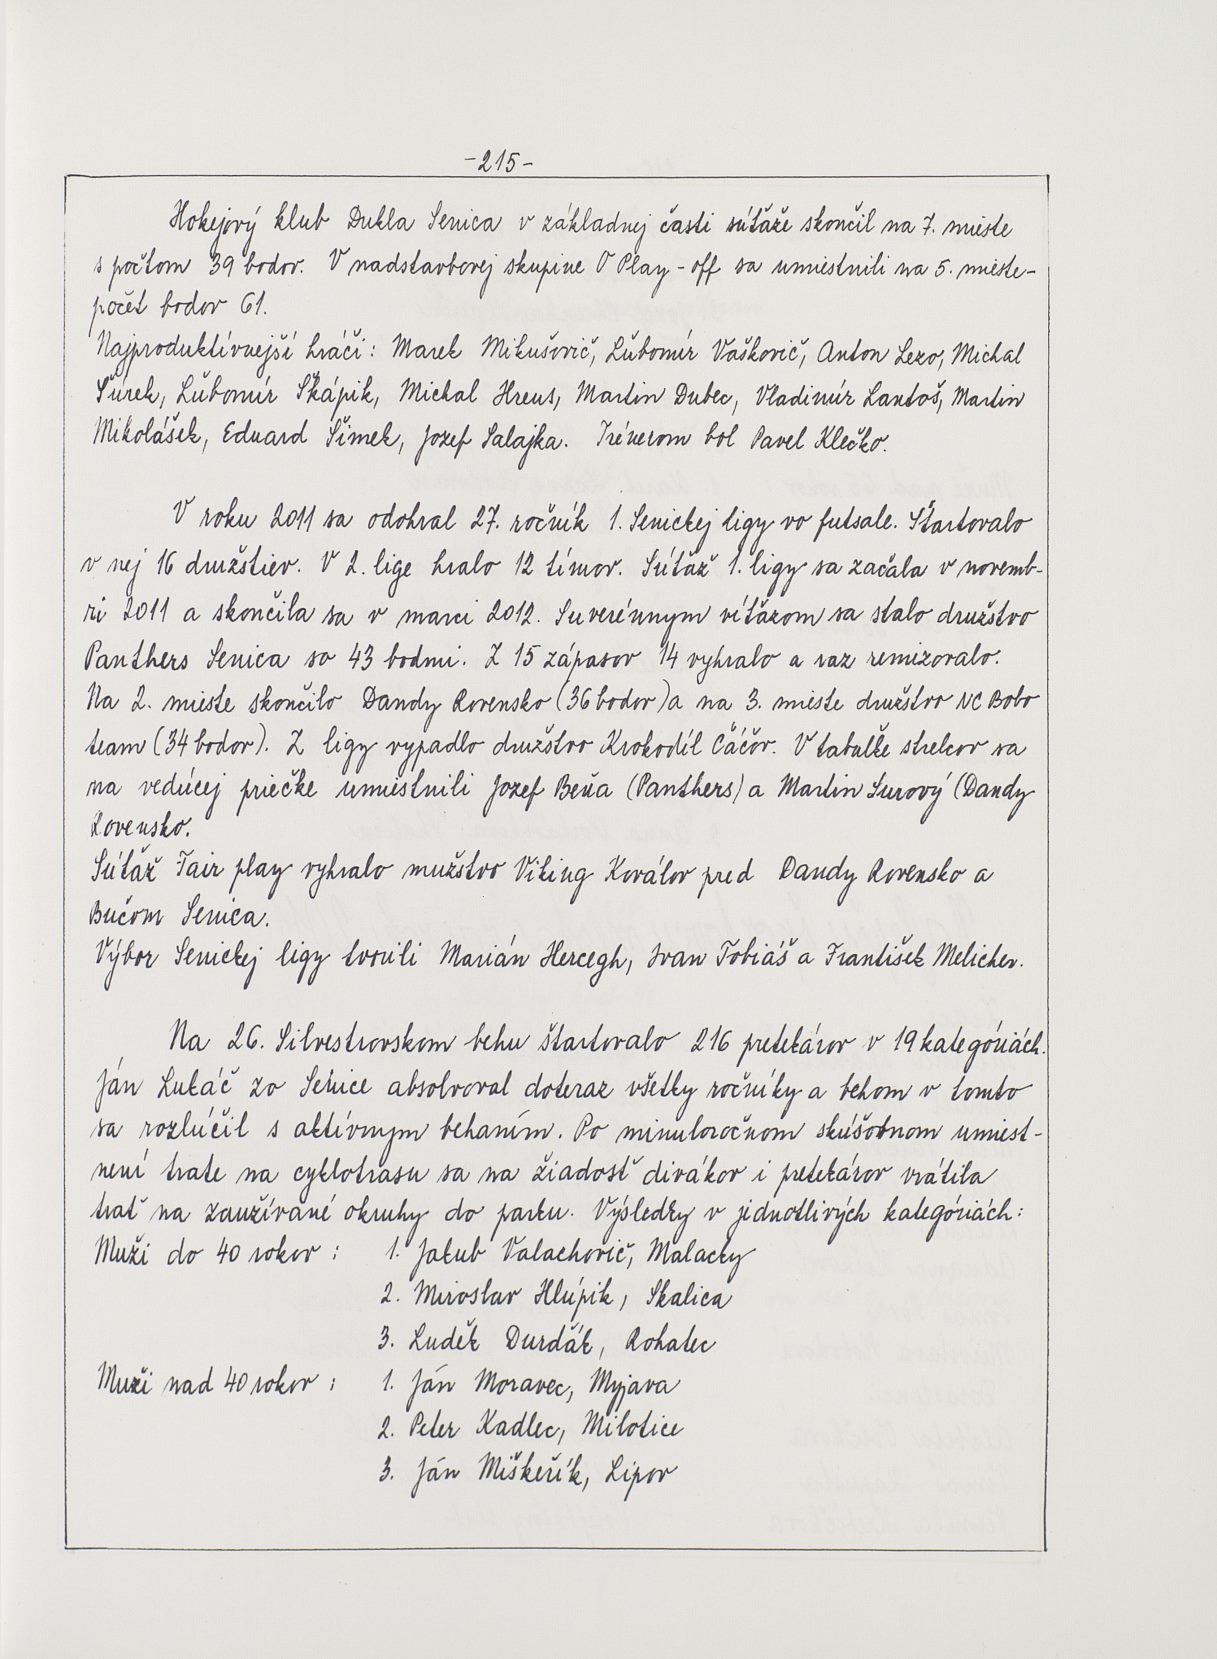 -215-
Hokejový klub Dukla Senica v základnej časti súťaže skončil na 7. mieste
s počtom 39 bodov. V nadstavbovej skupine O Play-off sa umiestnili na 5. mieste-
počet bodov 61.
Najproduktívnejší hráči: Marek Mikušovič, Ľubomír Vaškovič, Anton Lezo, Michal
Šúrek, Ľubomír Škápik, Michal Hreus, Martin Dubec, Vladimír Lantoš, Martin
Mikolášek, Eduard Šimek, Jozef Salajka. Trénerom bol Pavel Klečko.
V roku 2011 sa odohral 27. ročník 1. Senickej ligy vo futsale. Štartovalo
v nej 16 družstiev. V 2. lige hralo 12 tímov. Súťaž 1. ligy sa začala v novemb-
ri 2011 a skončila sa v marci 2012. Suverénnym víťazom sa stalo družstvo
Panthers Senica so 43 bodmi. Z 15 zápasov 14 vyhralo a raz remizovalo.
Na 2. mieste skončilo Dandy Rovensko (36 bodov) a na 3. mieste družstvo NC Bobo
team (34 bodov). Z ligy vypadlo družstvo Krokodíl Čáčov. V tabuľke strelcov sa
na vedúcej priečke umiestnili Jozef Beňa (Panthers) a Martin Surový (Dandy
Rovensko.
Súťaž Fair play vyhralo mužstvo Viking Koválov pred Dandy Rovensko a
Bučom Senica.
Výbor Senickej ligy tvorili Marián Hercegh, Ivan Tobiáš a František Melicher.
Na 26. Silvestrovskom behu štartovalo 216 pretekárov v 19 kategóriách.
Ján Lukáč zo Senice absolvoval doteraz všetky ročníky a behom v tomto
sa rozlúčil s aktívnym behaním. Po minuloročnom skúšobnom umiest-
není trate na cyklotrasu sa na žiadosť divákov i pretekárov vrátila
trať na zaužívané okruhy do parku. Výsledky v jednotlivých kategóriách:
Muži do 40 rokov: 1. Jakub Valachovič, Malacky
2. Miroslav Hlúpik, Skalica
3. Luděk Durďák, Rohatec
Muži nad 40 rokov: 1. Ján Moravec, Myjava
2. Peter Kadlec, Milotice
3. Ján Miškeřík, Lipov